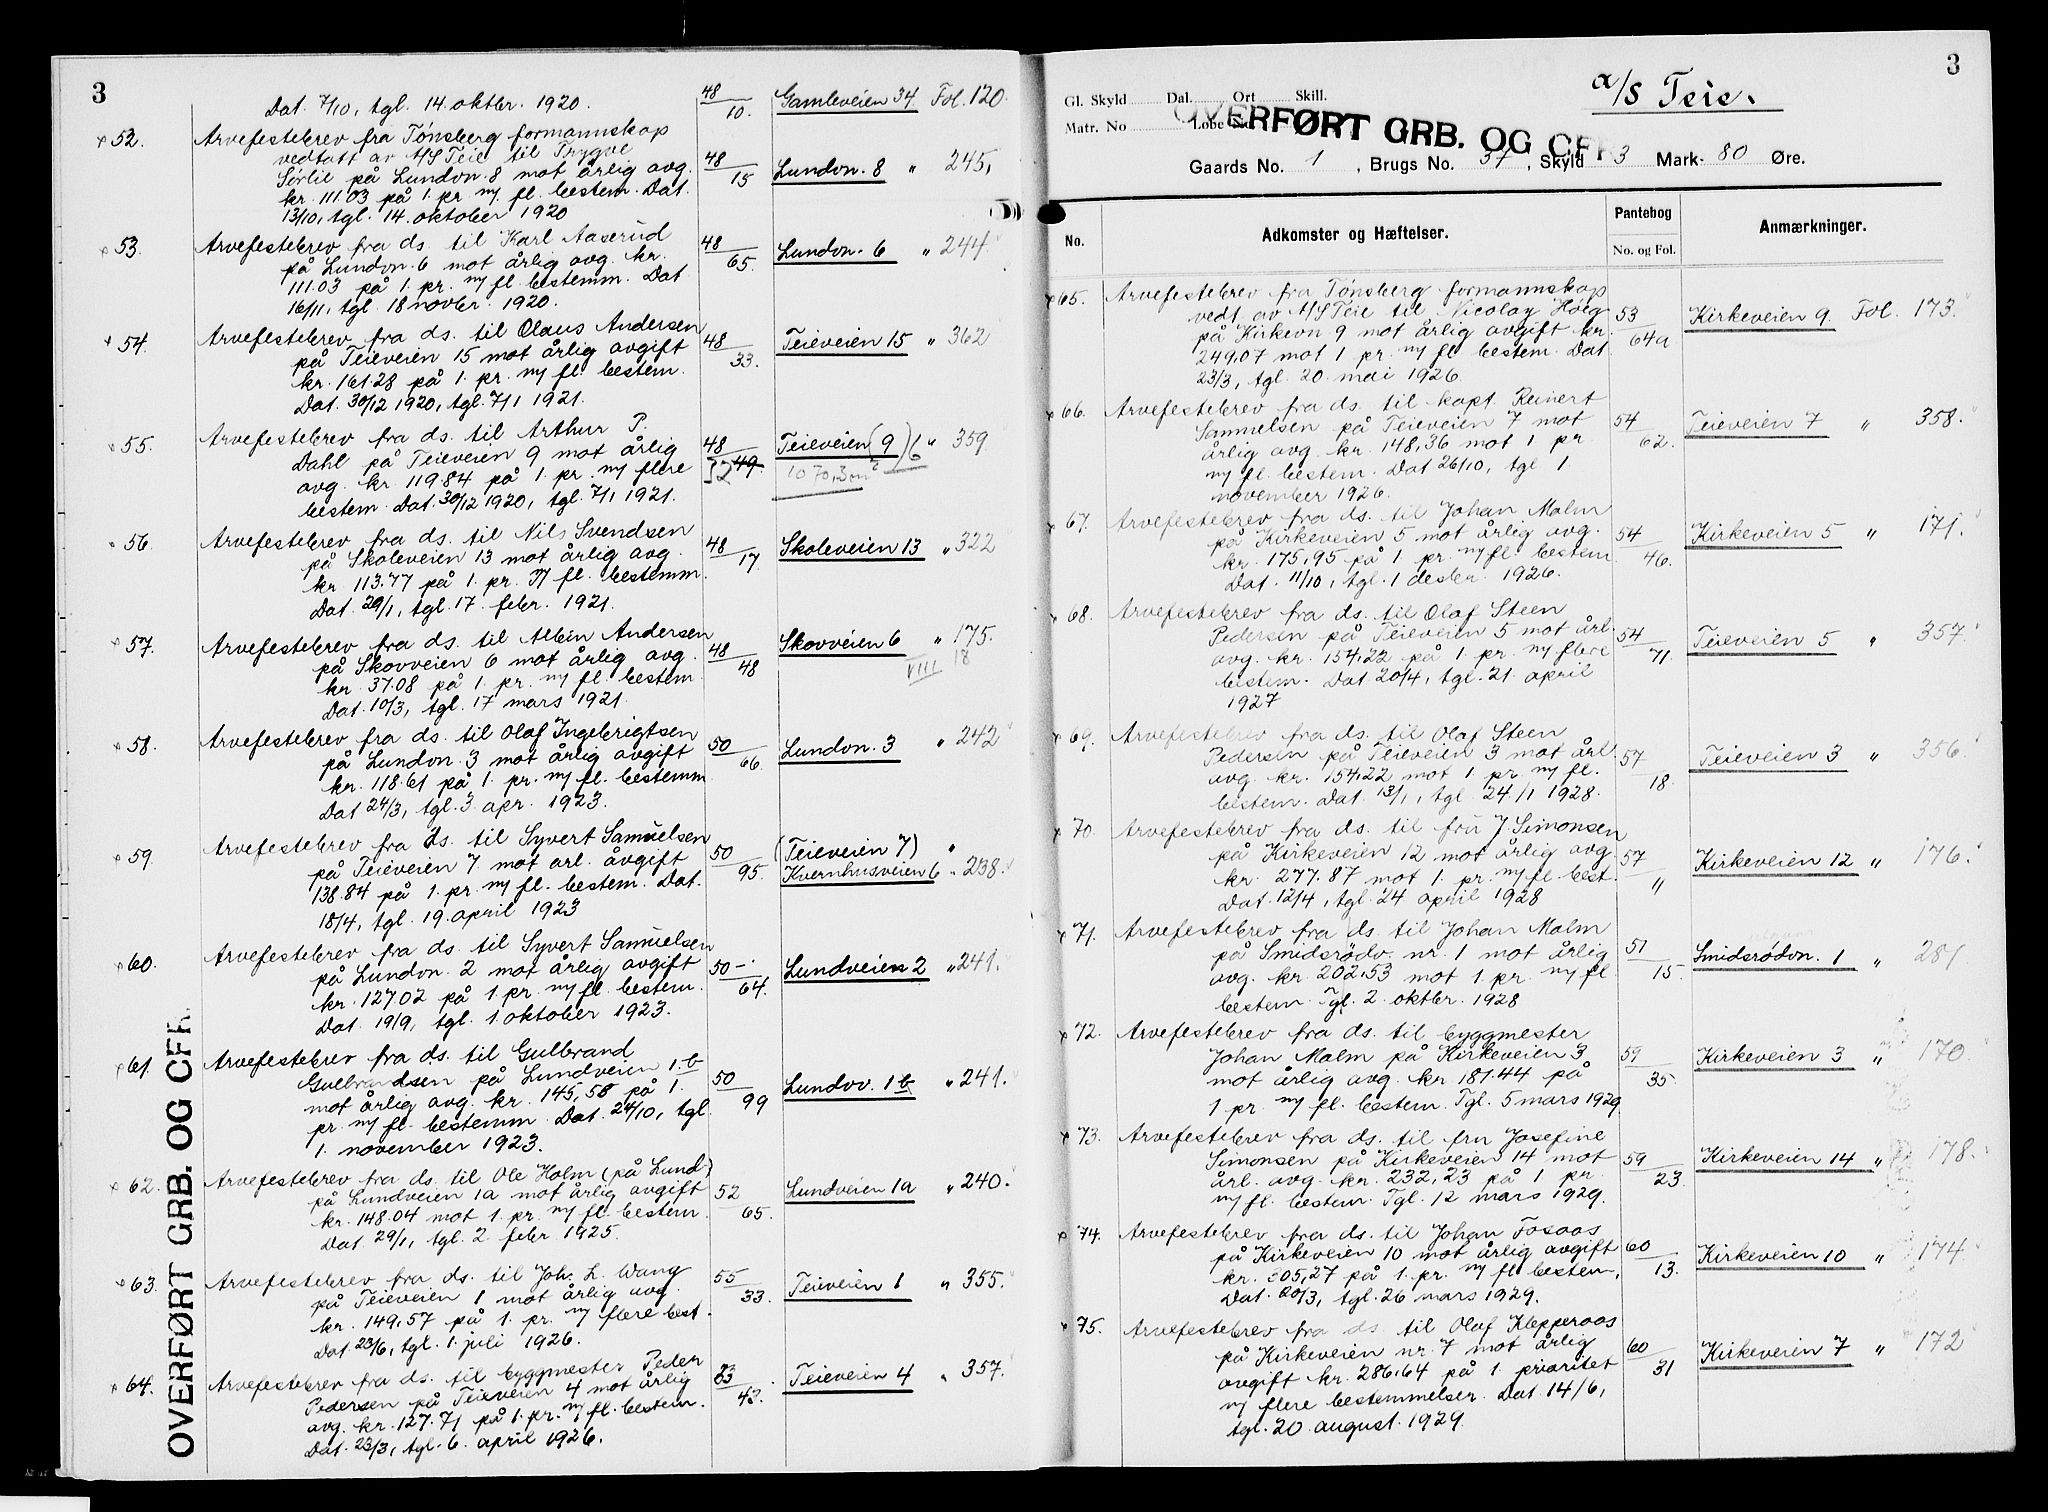 3
Dat. 7/10, tgl. 14. oktbr. 1920. 48/10. Gamleveien 34 Fol. 120.
x 52. Arvefestebrev fra Tønsberg formannskap
vedtatt av A/S Teie til Trygve
Sørlie på Lundvn. 8 mot årlig avg. 48/15 Lundvn. 8 " 245,
kr. 111.03 på 1. pr. m/ fl. bestem. Dat.
13/10, tgl. 14. oktober 1920
x 53. Arvefestebrev fra ds. til Karl Aaserud 48/65. Lundvn. 6 " 244.
på Lundvn. 6 mot årlig avg. kr.
111.03 på 1. pr. m/ fl. bestemm. Dat
16/11, tgl. 18 novbr. 1920.
x 54. Arvefestebrev fra ds. til Olaus Andersen 48/33. Teieveien 15 " 362
på Teieveien 15 mot årlig avgift
kr. 161.28 på 1. pr. m/ fl. bestem.
Dat. 30/12 1920, tgl. 7/1 1921.
x 55. Arvefestebrev fra ds. til Arthur P. 48/49. 32 Teieveien (9) 6 " 359
Dahl på Teieveien 9 mot årlig 1070,3 m²
avg. kr. 119.84 på 1. pr. m/ flere
bestem. Dat. 30/12 1920, tgl. 7/1 1921.
x 56. Arvefestebrev fra ds. til Nils Svendsen 48/17. Skoleveien 13 " 322
på Skoleveien 13 mot årlig avg.
kr. 113.77 på 1. pr. m/ fl. bestemm.
Dat. 29/1, tgl. 17. febr. 1921.
x 57. Arvefestebrev fra ds. til Albin Andersen 48/48 Skovveien 6 " 175.
på Skovveien 6 mot årlig avg. 18
kr. 37.08 på 1. pr. m/ fl. bestem. VIII
Dat. 10/3, tgl. 17 mars 1921.
x 58. Arvefestebrev fra ds. til Olaf Ingebrigtsen 50/66. Lundvn. 3 " 242
på Lundvn. 3 mot årlig avgift
kr. 118.61 på 1. pr. m/ fl. bestemm
Dat 24/3, tgl. 3. apr. 1923.
x 59 Arvefestebrev fra ds. til Syvert Samuelsen 50/95. (Teieveien 7) "
på Teieveien 7 mot arl. avgift Kvernhusveien 6 " 238.
138.84 på 1. pr. m/ fl. bestem. Dat.
18/4, tgl. 19. april 1923
x 60. Arvefestebrev fra ds. til Syvert Samuelsen 50/64. Lundveien 2 " 241.
på Lundvn. 2 mot årlig avgift
kr. 127.02 på 1 pr. m/ fl. bestem.
Dat. 19/9, tgl. 1. oktober 1923.
x 61. Arvefestebrev fra ds. til Gulbrand
Gulbrandsen på Lundveien 1.b 50/99 Lundvv. 1b " 241.
mot årlig avg. kr. 145,58 på 1.
pr. m/ fl. bestemm. Dat. 24/10, tgl
1. november 1923.
x 62. Arvefestebrev fra ds. til Ole Holm (på Lund)
på Lundveien 1a mot årlig avgift 52/65. Lundveien 1a " 240.
kr. 148.04 mot 1. pr. m/ fl. bestem.
Dat. 29/1, tgl. 2. febr 1925.
x 63. Arvefestebrev fra ds. til Joh. L. Wang 55/33. Teieveien 1 " 355.
på Teieveien 1 mot årlig avg.
kr. 149,57 på 1. pr. m/ flere best.
Dat. 23/6, tgl. 1. juli 1926.
x 64. Arvefestebrev fra ds. til byggmester Peder 53/43. Teieveien 4 " 357.
Pedersen på Teieveien 4 mot årlig
avg. kr. 127.71 på 1. pr. m/ fl. bestem.
Dat. 23/3, tgl. 6. april 1926.
OVERFØRT GRB. OG CFR.
3
A/S Teie.
Gl. Skyld Dal. Ort Skill.
Matr. No Løbe No.
OVERFØRT GRB. OG CFR
Gaards No. 1, Brugs No. 37, Skyld 3 Mark 80 Øre.
No. Adkomster og Hæftelser. Pantebog No. og Fol. Anmærkninger.
x 65. Arvefestebrev fra Tønsberg formannskap
vedt. av A/S Teie til Nicolay Høeg 53/64a Kirkeveien 9. Fol. 173.
på Kirkevn 9 mot årlig avgift kr.
249.07 mot 1 pr. m/ fl bestem. Dat
23/3, tgl. 20. mai 1926.
x 66. Arvefestebrev fra ds. til kapt. Reinert
Samuelsen på Teieveien 7 mot 54/62. Teieveien 7 " 358.
årlig avg. kr. 148,36 mot 1 pr
m/ fl. bestem. Dat 26/10, tgl 1.
november 1926.
x 67. Arvefestebrev fra ds. til Johan Malm
på Kirkeveien 5 mot årlig avg. 54/46. Kirkeveien 5 " 171.
kr. 175,95 på 1. pr. m/ fl. bestem
Dat. 11/10, tgl. 1 desbr. 1926.
x 68. Arvefestebrev fra ds. til Olaf Steen
Pedersen på Teieveien 5 mot årl. 54/71. Teieveien 5 " 357.
avg. kr. 154,22 på 1. pr. m/ flere
bestem. Dat 20/4, tgl. 21. april
1927
x 69. Arvefestebrev fra ds. til Olaf Steen
Pedersen på Teieveien 3 mot årl. 57/18. Teieveien 3 " 356.
avg. kr. 154,22 mot 1. pr. m/ fl.
bestem. Dat. 13/1, tgl. 24./1 1928.
x 70. Arvefestebrev fra ds. til fru J. Simonsen
på Kirkeveien 12 mot årlig avg. 57/" Kirkeveien 12 " 176.
kr. 277.87 mot 1. pr. m/ fl. best.
Dat. 12/4, tgl. 24 april 1928
x 71. Arvefestebrev fra ds. til Johan Malm
på Smidsrødv. nr. 1 mot årlig 51/15. Smidsrødvn. 1 " 281
avg. kr. 202,53 mot 1. pr. m/ fl
bestem. Tgl. 2. oktbr. 1928
x 72. Arvefestebrev fra ds. til byggmester
Johan Malm på Kirkeveien 3 59/35. Kirkeveien 3 " 170.
mot årlig avg. kr 181.44 på
1 pr. m/ fl. bestem. Tgl. 5 mars 1929
x 73. Arvefestebrev fra ds. til fru Josefine
Simonsen på Kirkeveien 14 mot 59/23. Kirkeveien 14 " 178.
årl. avg. kr. 232,23 på 1 pr
m/ fl. bestem. Tgl. 12 mars 1929.
x 74. Arvefestebrev fra ds. til Johan Fosaas
på Kirkeveien 10 mot årlig avgift 60/13. Kirkeveien 10 " 174
kr. 305,27 på 1. pr. m/ fl bestem,
Dat. 20/3, tgl. 26 mars 1929.
x 75. Arvefestebrev fra ds til Olaf Klepperaas
på Kirkeveien nr. 7 mot årlig 60/31 Kirkeveien 7 " 172
avgift kr. 286,64 på 1. prioritet
m/ flere bestemmelser. Dat. 14/6,
tgl. 20 august. 1929.